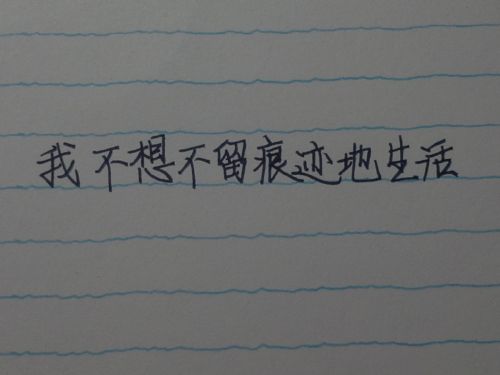 我不想不留痕迹地生活